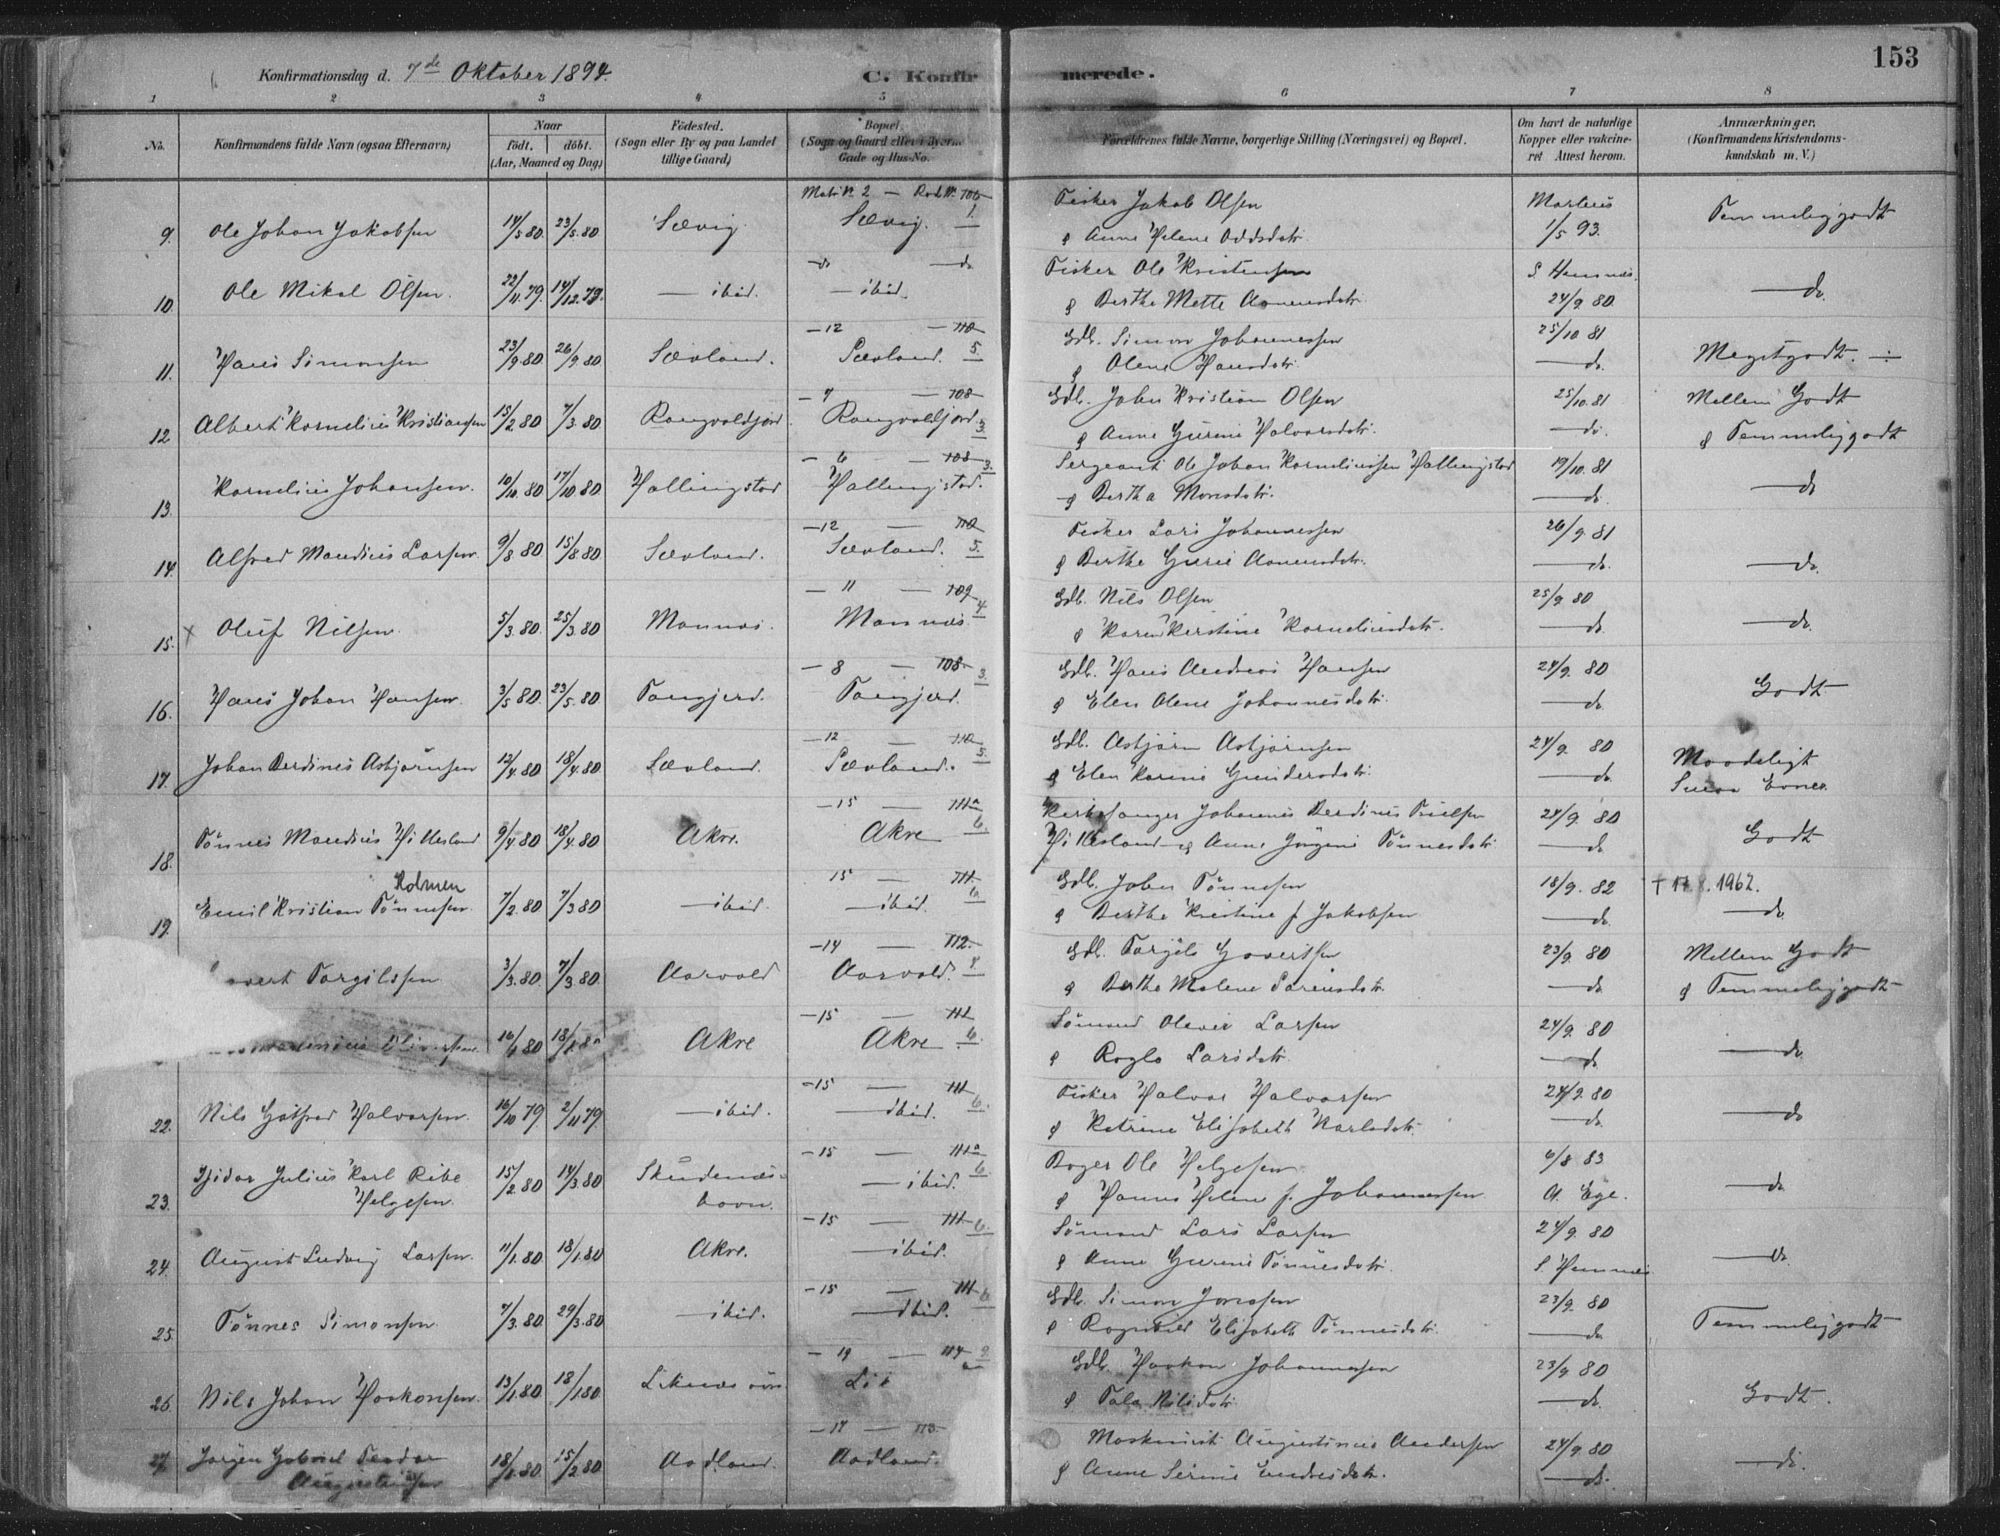 153
Konfirmationsdag d. 7de Oktober 1894.
C. Konfirmerede.
1 2 3 4 5 6 7 8
No. Konfirmandens fulde Navn (ogsaa Efternavn) Naar födt. döbt. (Aar, Maaned og Dag) Födested. (Sogn eller By og paa Landet tillige Gaard) Bopæl. (Sogn og Gaard eller i Byen Gade og Hus-No. Forældrenes fulde Navne, borgerlige Stilling (Næringsvei) og Bopæl. Om havt de naturlige Kopper eller vakcineret Attest herom. Anmærkninger. (Konfirmandens Kristendomskundskab m. V.)
Matr N. 2 — 106
9. Ole Johan Jakobsen 14/5 80. 23/5. 80 Sævig Sævig. 1. Fisker Jakob Olsen & Anne Helene Oddsdtr. 1/5 93. Temmelig godt
do — do
10. Ole Mikal Olsen. 22/11. 79. 14/12. 79. — ibid. — ibid. Fisker Ole Kristensen & Berthe Mette Aanensdtr. 24/9. 80 — do.
— 12 — 110
11. Hans Simonsen 23/9 80 26/9. 80 Sævland. Sævland. 5. Gdb. Simon Johannessen & Olene Hansdtr. 25/10 81 — do. Meget godt. —
— 7 — 108
12 Albert Kornelius Kristiansen 15/2 80 7/3. 80 Rangvaldjord. Rangvaldjord. 3. Gdb. John Kristian Olsen & Anne Gurine Halvorsdtr. 25/10. 81 — do. Mellem Godt & Temmelig godt
— 6 — 108 3.
13. Kornelius Johansen. 10/10 80 17/10 80 Hallingstad Hallingstad. Sergeant Ole Johan Korneliussen Hallingstad & Bertha Monsdtr. 19/10. 81 — do. — do
— 12 — 110
14. Alfred Maudius Larsen. 9/8 80 15/8 80 Sævland. Sævland. 5. Fisker Lars Johannessen & Berthe Gurie Aanensdtr. 26/9. 81 — do. — do.
— 11 — 109
15. X Oluf Nilsen. 5/3. 80. 25/3. 80 Mannæs. Mannæs. 4 Gdb. Nils Olsen & Karen Kirstine Korneliusdtr. 25/9 80 — do. — do.
— 8 — 108
16. Hans Johan Hansen 3/5 80. 23/5. 80 Tangjerd. Tangjerd. 3. Gdb. Hans Andreas Hansen & Elen Olene Johannesdtr. 24/9. 80 — do. Godt
— 12 — 110
17. Johan Berdines Asbjörnsen 12/4. 80 18/4. 80 Sævland. Sævland. 5. Gdb. Asbjörn Asbjörnsen & Elen Karine Gundersdtr. 24/9. 80 — do. Maadeligt Smaa Evner.
— 15 — 111a
18. Tönnes Maudius Hillesland 9/4. 80 18/4. 80 Akre. Akre 6. Kirkesanger Johannes Berdinus Hillesland & Anne Jörgine Tönnesdtr. 24/9. 80 — do. Godt
15 — 111
19. Emil Kristian Tönnesen. Holmen 7/2. 80 7/3 80 — ibid. — ibid. 6. Gdb. John Tönnesen & Berthe Kristine f. Jakobsen 18/9. 82 — do. † 1962. — do.
— 14 — 112.
Targilssen 3/3. 80 7/3. 80 Aarvald Aarvald. 7 Gdb. Targils Govertsen & Berthe Malene Sörensdtr. 23/9. 80 — do. Mellem Godt & Temmelig godt
— 15 — 111
80 18/1. 80 Akre Akre 6. Sömand Oliver Larsen & Ragla Larsdtr. 24/9. 80 — do. — do.
— 15 — 111
22. Nils Gotfred Halvorsen. 16/10 79 2/11 79 — ibid. — ibid. 6. Fisker Halvor Halvorsen & Katrine Elisabeth Karlsdtr. 24/9. 80 — do. — do
— 15 — 111a
23. Isidor Julius Karl Ribe Helgesen 15/2. 80 14/3. 80 Skudenæshavn. — ibid. 6. Bager Ole Helgesen & Hanna Helene f. Johannessen 6/8 83 A. Ege. — do
— 15 — 111 6.
24. August Ludvig Larsen. 11/1. 80 18/1. 80 Akre. — ibid. Sömand Lars Larsen & Anne Gurine Tönnesdtr. 24/9. 80 — do.
— 15 — 111 6.
25. Tönnes Simonsen 7/3. 80 29/3. 80 — ibid. — ibid. Gdb. Simon Jonassen & Ragnhild Elisabeth Tönnesdtr. 23/9. 80 — do. Temmelig godt
— 19 — 114 9.
26. Nils Johan Haakonsen. 13/1. 80. 18/1 80 Liknæs Li Gdb. Haakon Johannesen & Tala Nilsdtr. 23/9 80 — do. Godt.
— 17 — 113
27. Jörgen Gabriel Teodor Augustinsen 18/1. 80 15/2. 80 Aadland. Aadland. Maskinist Augustinus Andersen & Anne Serine Endresdtr. 24/9. 80 — do. — do.